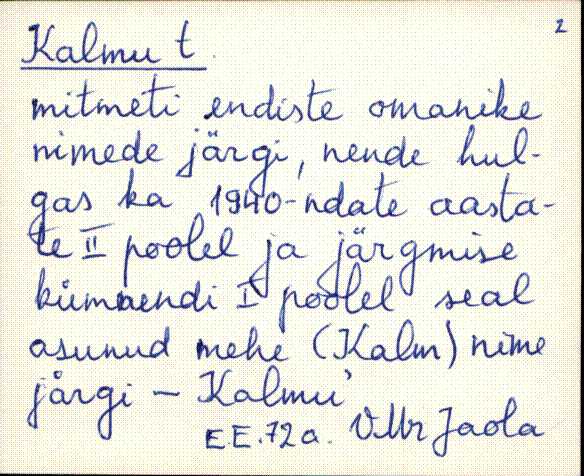 2
Kalmu t.
mitmeti endiste omanike
nimede järgi, nende hul-
gas ka 1940-ndate aasta-
te II poolel ja järgmise
kümnendi I poolel seal
asunud mehe (Kalm) nime
järgi – Kalmu'
E.E. 72 a. VMr Jaola